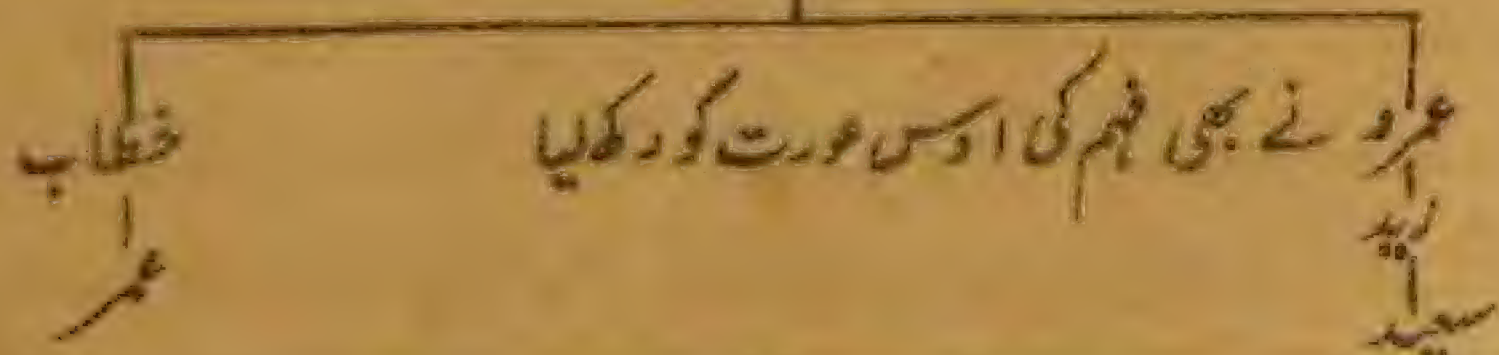 عمرو نے بھی فہم کی اوس عورت کو رکھ لیا
خطاب
زید
عمر
سعید